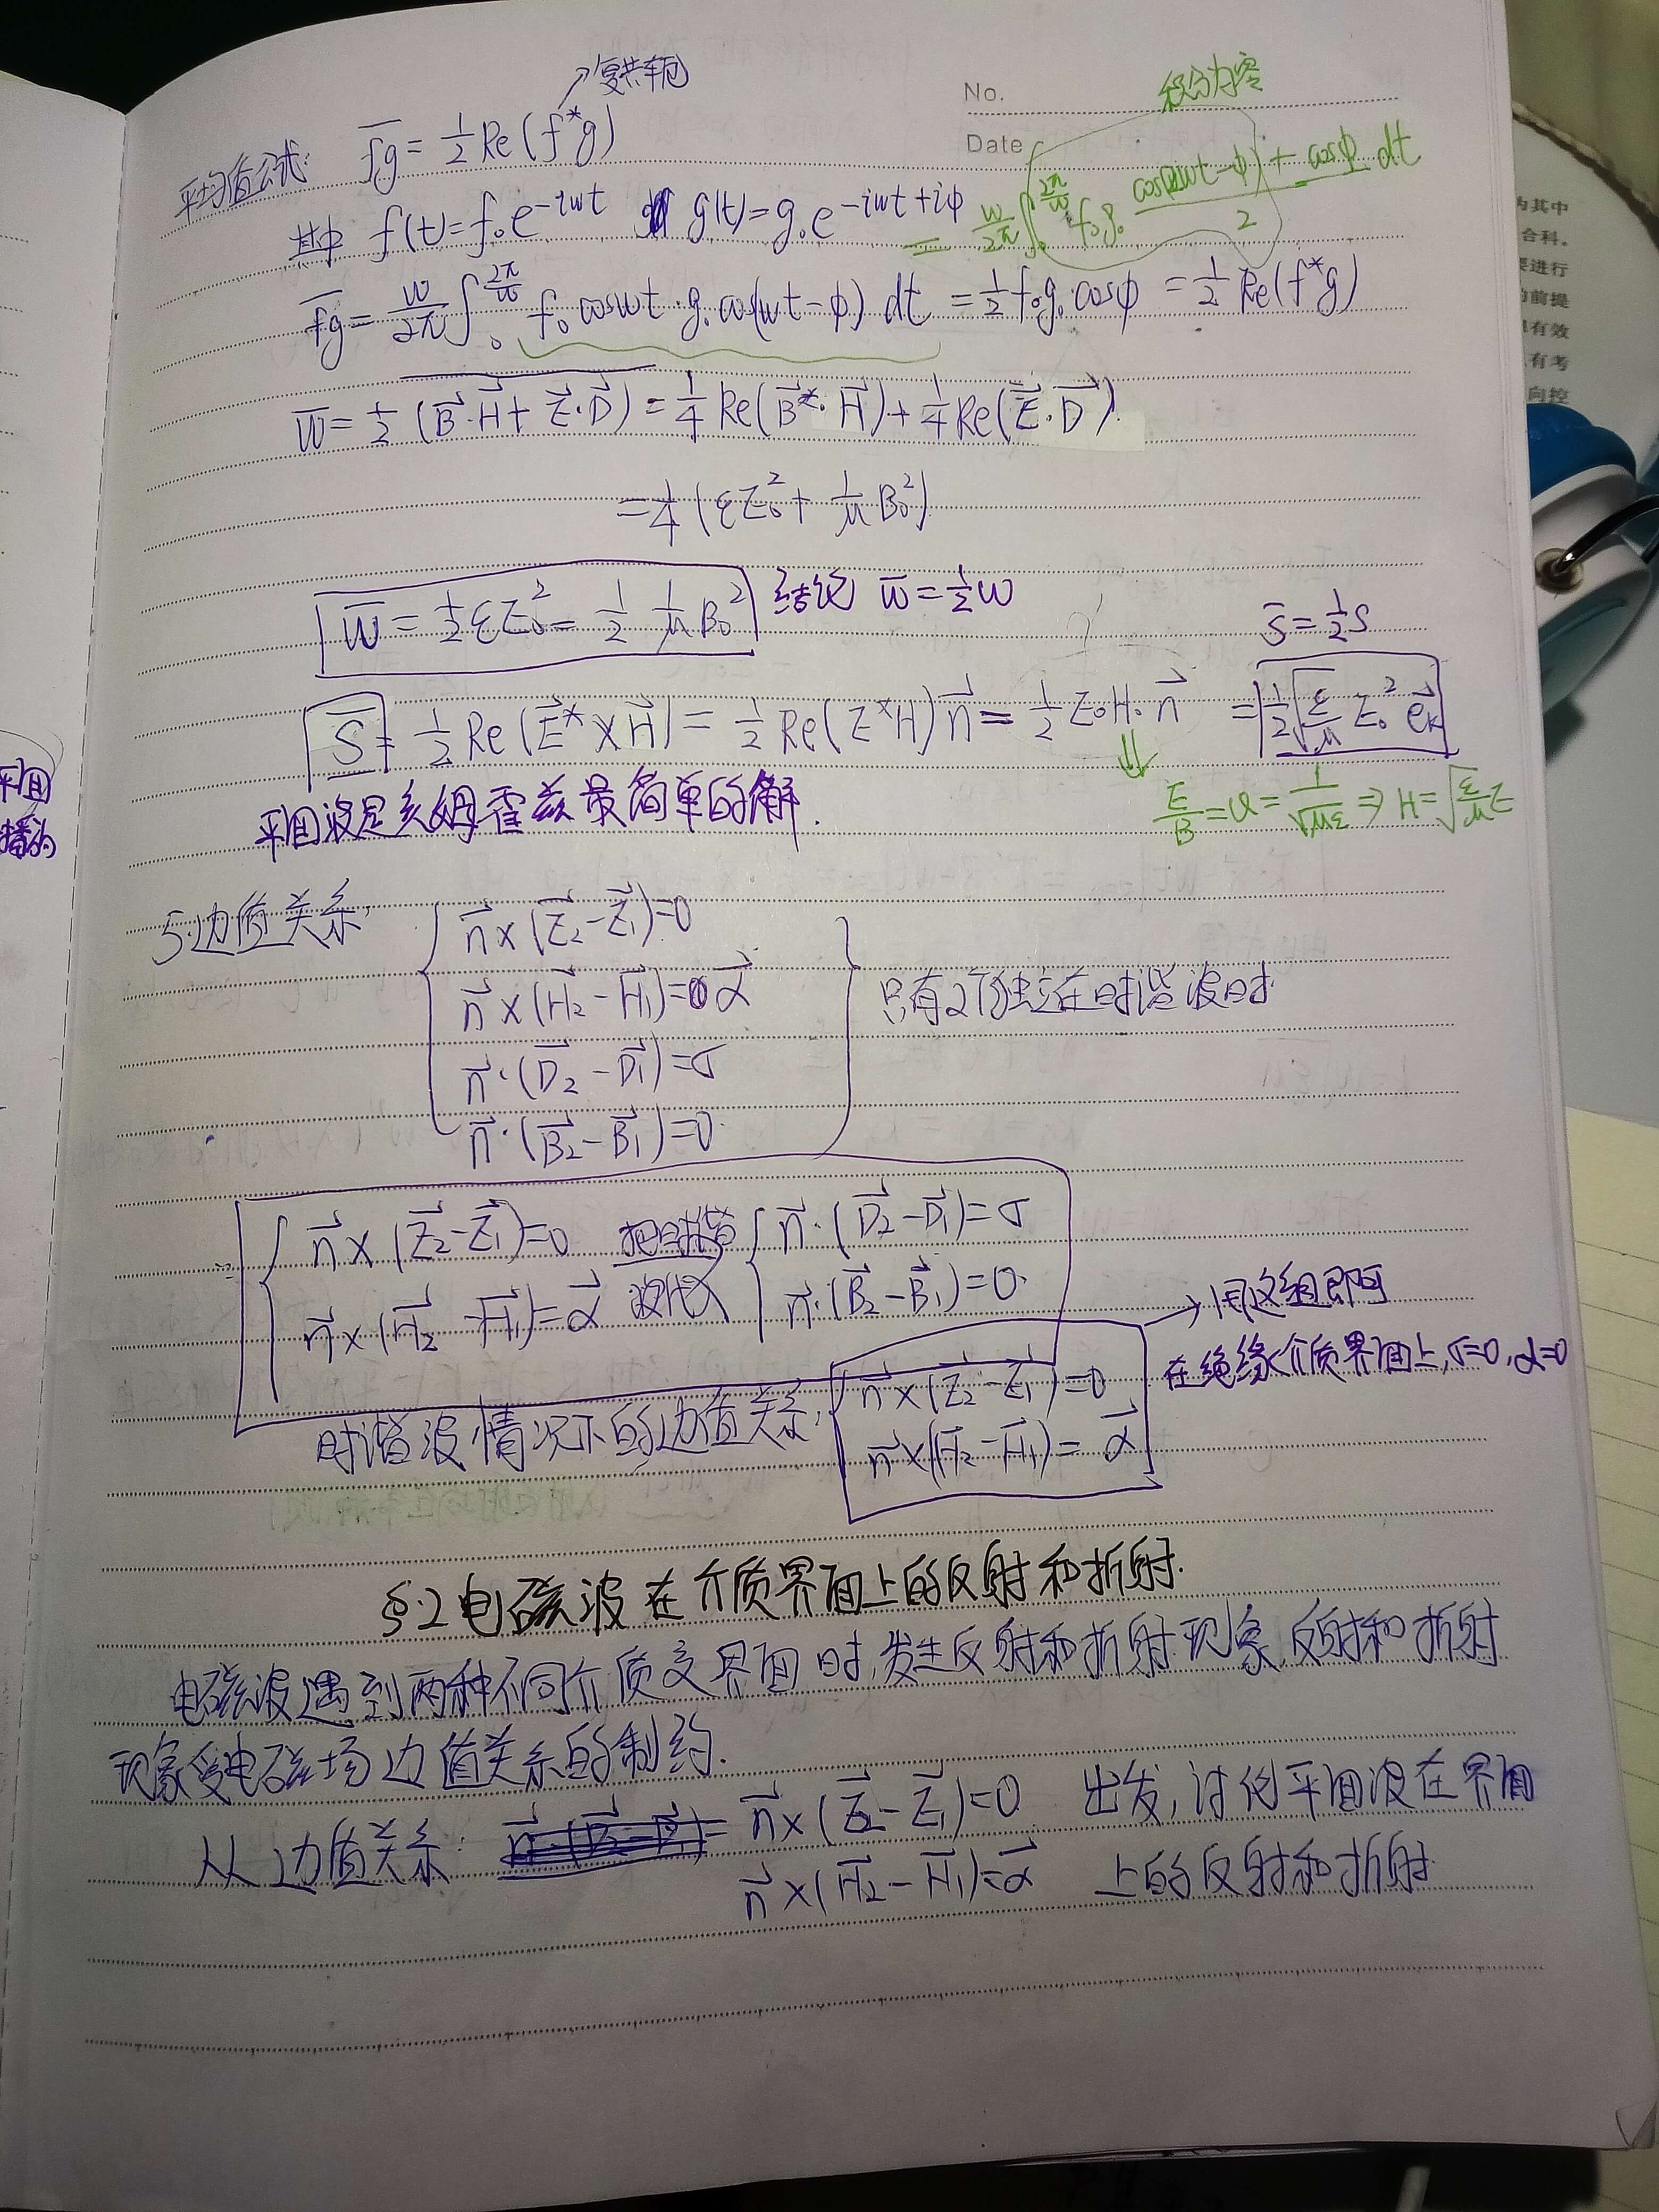 No.
Date
→复共轭
积分内容
平均值公式: \overline{fg} = \frac{1}{2} Re(f^*g)
其中 f(t)=f₀e^{-iωt} g(t)=g₀e^{-iωt+iφ}
= \frac{ω}{2π}∫_0^{\frac{2π}{ω}} f₀g₀ \frac{cos(2ωt-φ)+cosφ}{2} dt
\overline{fg} = \frac{ω}{2π}∫_0^{\frac{2π}{ω}} f₀cosωt·g₀cos(ωt-φ) dt = \frac{1}{2}f₀g₀cosφ = \frac{1}{2}Re(f^*g)
\overline{w} = \frac{1}{2}\overline{(\vec{B}·\vec{H}+\vec{E}·\vec{D})} = \frac{1}{4}Re(\vec{B}^*·\vec{H})+\frac{1}{4}Re(\vec{E}·\vec{D}).
= \frac{1}{4}(εE₀²+\frac{1}{μ}B₀²)
\overline{w} = \frac{1}{2}εE₀² = \frac{1}{2}\frac{1}{μ}B₀² 结论 \overline{w}=\frac{1}{2}w
\overline{S}=\frac{1}{2}S
\overline{S} = \frac{1}{2}Re(\vec{E}^*×\vec{H}) = \frac{1}{2}Re(E^*H)\vec{n} = \frac{1}{2}E₀H₀\vec{n} = \frac{1}{2}\sqrt{\frac{ε}{μ}}E₀²\vec{e}_k
⇓
\frac{E}{B}=v=\frac{1}{\sqrt{με}} ⇒ H=\sqrt{\frac{ε}{μ}}E
平面波是亥姆霍兹最简单的解.
5.边值关系:
\vec{n}×(\vec{E}₂-\vec{E}₁)=0
\vec{n}×(\vec{H}₂-\vec{H}₁)=\vec{α}
\vec{n}·(\vec{D}₂-\vec{D}₁)=σ
\vec{n}·(\vec{B}₂-\vec{B}₁)=0.
只有2个独立在时谐波时
\vec{n}×(\vec{E}₂-\vec{E}₁)=0 把时谐 \vec{n}·(\vec{D}₂-\vec{D}₁)=σ
\vec{n}×(\vec{H}₂-\vec{H}₁)=\vec{α} 波代入 \vec{n}·(\vec{B}₂-\vec{B}₁)=0.
→用这组即可
在绝缘介质界面上,σ=0,α=0
时谐波情况下的边值关系: \vec{n}×(\vec{E}₂-\vec{E}₁)=0
\vec{n}×(\vec{H}₂-\vec{H}₁)=\vec{α}
§.2 电磁波在介质界面上的反射和折射.
电磁波遇到两种不同介质交界面时,发生反射和折射现象,反射和折射
现象受电磁场边值关系的制约.
从边值关系: \vec{n}×(\vec{E}₂-\vec{E}₁)=0 出发,讨论平面波在界面
\vec{n}×(\vec{H}₂-\vec{H}₁)=\vec{α} 上的反射和折射
为其中
合料.
要进行
的前提
有效
有考
向控
平面
播为